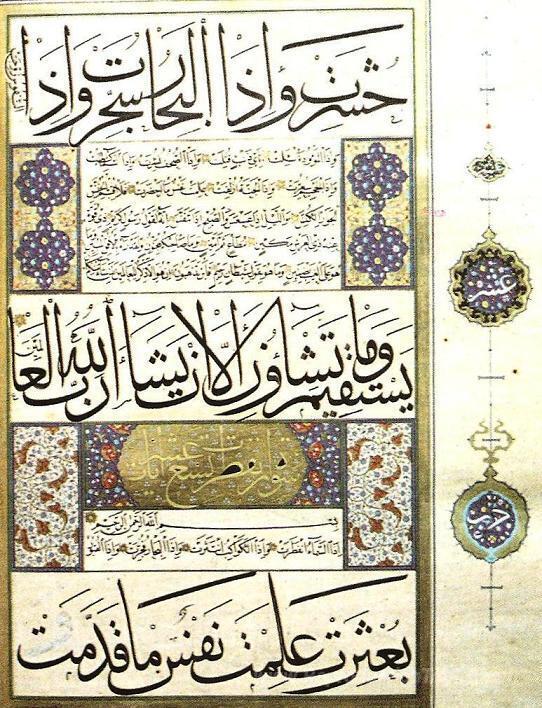 حُشِرَتْ وَاِذَا الْبِحَارُ سُجِّرَتْ وَاِذَا
النفوس زوجت
وَاِذَا الْمَوْءُدَةُ سُئِلَتْ بِاَيِّ ذَنْبٍ قُتِلَتْ وَاِذَا الصُّحُفُ نُشِرَتْ وَاِذَا السَّمَاءُ كُشِطَتْ
وَاِذَا الْجَحِيمُ سُعِّرَتْ وَاِذَا الْجَنَّةُ اُزْلِفَتْ عَلِمَتْ نَفْسٌ مَا اَحْضَرَتْ فَلَا اُقْسِمُ بِالْخُنَّسِ
الْجَوَارِ الْكُنَّسِ وَالَّيْلِ اِذَا عَسْعَسَ وَالصُّبْحِ اِذَا تَنَفَّسَ اِنَّهُ لَقَوْلُ رَسُولٍ كَرِيمٍ ذِي قُوَّةٍ
عِنْدَ ذِي الْعَرْشِ مَكِينٍ مُطَاعٍ ثَمَّ اَمِينٍ وَمَا صَاحِبُكُمْ بِمَجْنُونٍ وَلَقَدْ رَاٰهُ بِالْاُفُقِ الْمُبِينِ وَمَا
هُوَ عَلَى الْغَيْبِ بِضَنِينٍ وَمَا هُوَ بِقَوْلِ شَيْطَانٍ رَجِيمٍ فَاَيْنَ تَذْهَبُونَ اِنْ هُوَ اِلَّا ذِكْرٌ لِلْعَالَمِينَ لِمَنْ شَاءَ مِنْكُمْ اَنْ
يَسْتَقِيمَ وَمَا تَشَاؤُنَ اِلَّا اَنْ يَشَاءَ اللّٰهُ رَبُّ الْعَا
لمين
سورة انفطرت تسع عشر
بِسْمِ اللّٰهِ الرَّحْمٰنِ الرَّحِيمِ
اِذَا السَّمَاءُ انْفَطَرَتْ وَاِذَا الْكَوَاكِبُ انْتَثَرَتْ وَاِذَا الْبِحَارُ فُجِّرَتْ وَاِذَا الْقُبُورُ
بُعْثِرَتْ عَلِمَتْ نَفْسٌ مَا قَدَّمَتْ
عشر
حزب